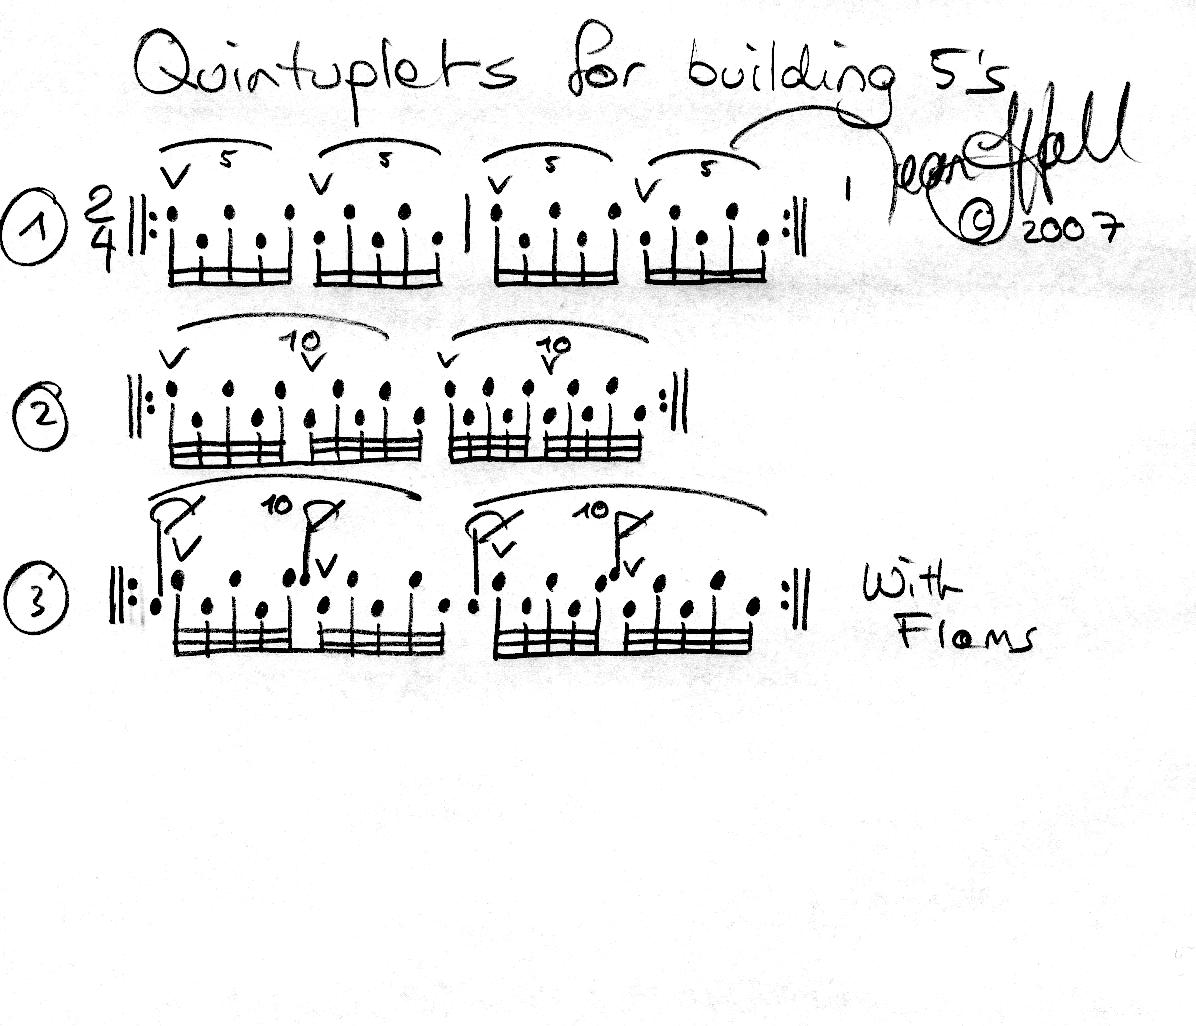 Quintuplets for building 5's
© 2007
1 2/4 5 5 5 5
2 10 10
3 10 10 With
Flams